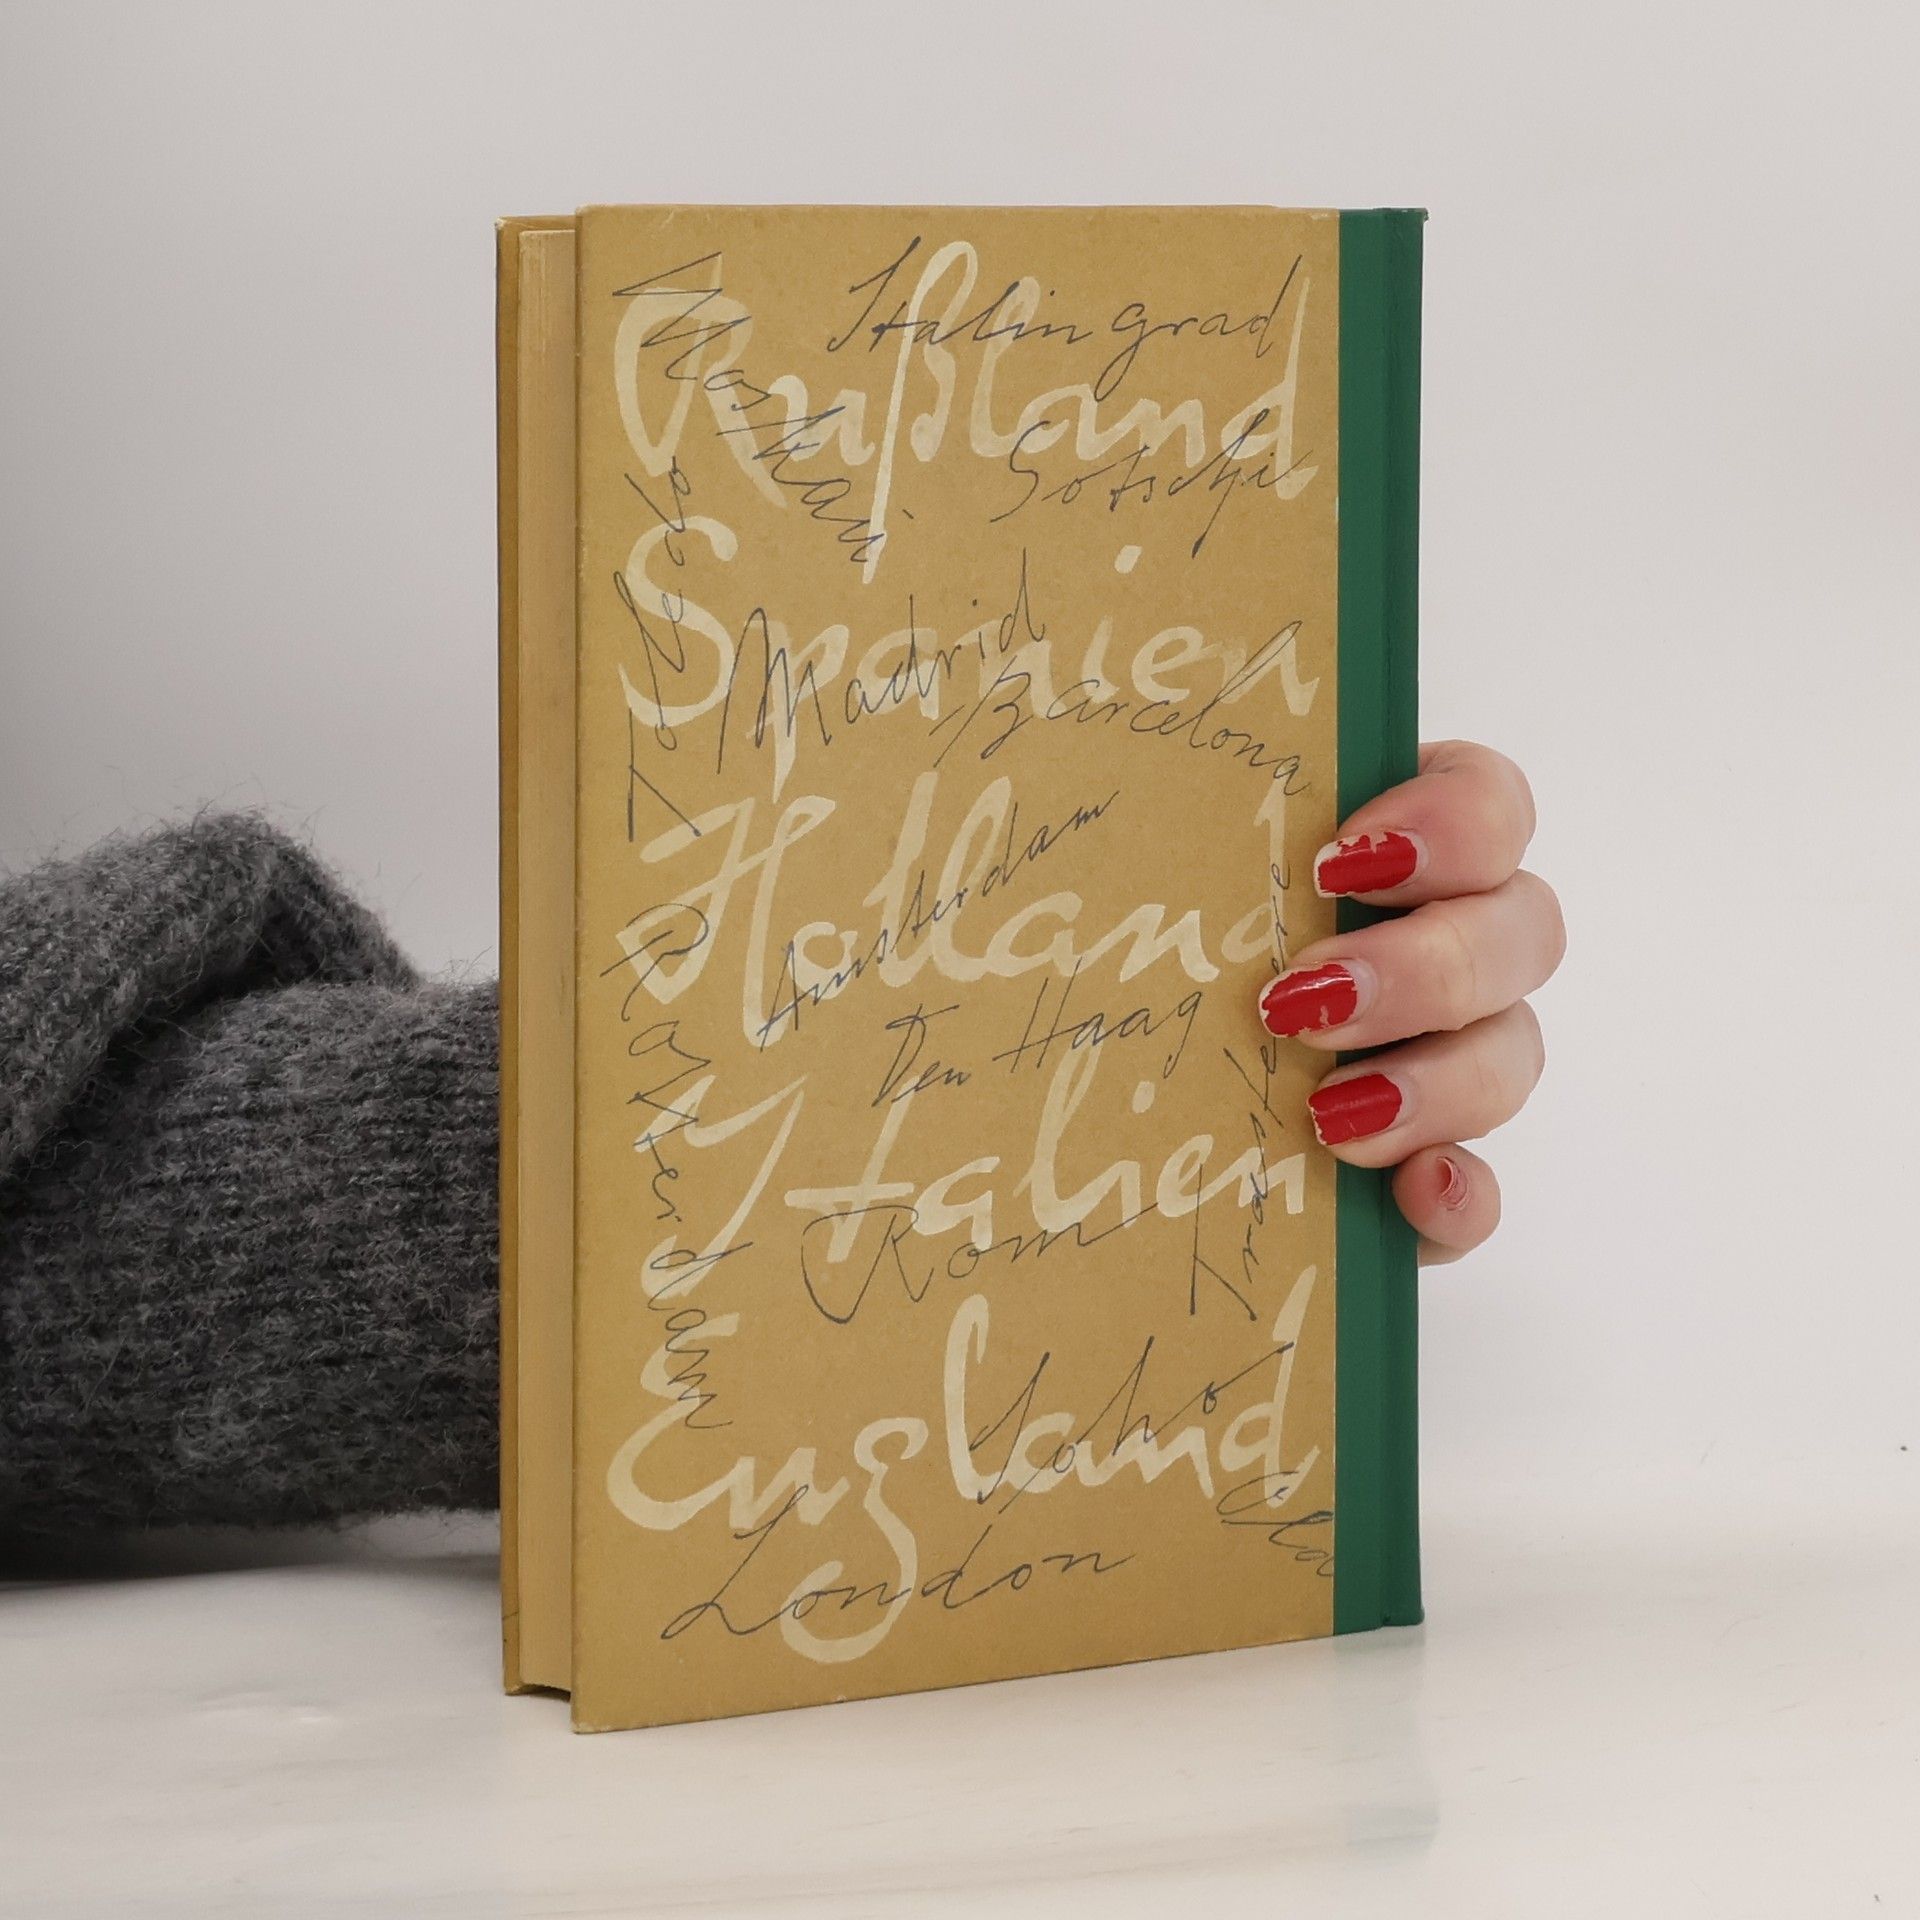 Rußland
Stalingrad
Moskau
Sotschi
Spanien
Toledo
Madrid
Barcelona
Holland
Amsterdam
Den Haag
Rotterdam
Italien
Rom
Trastevere
England
Soho
London